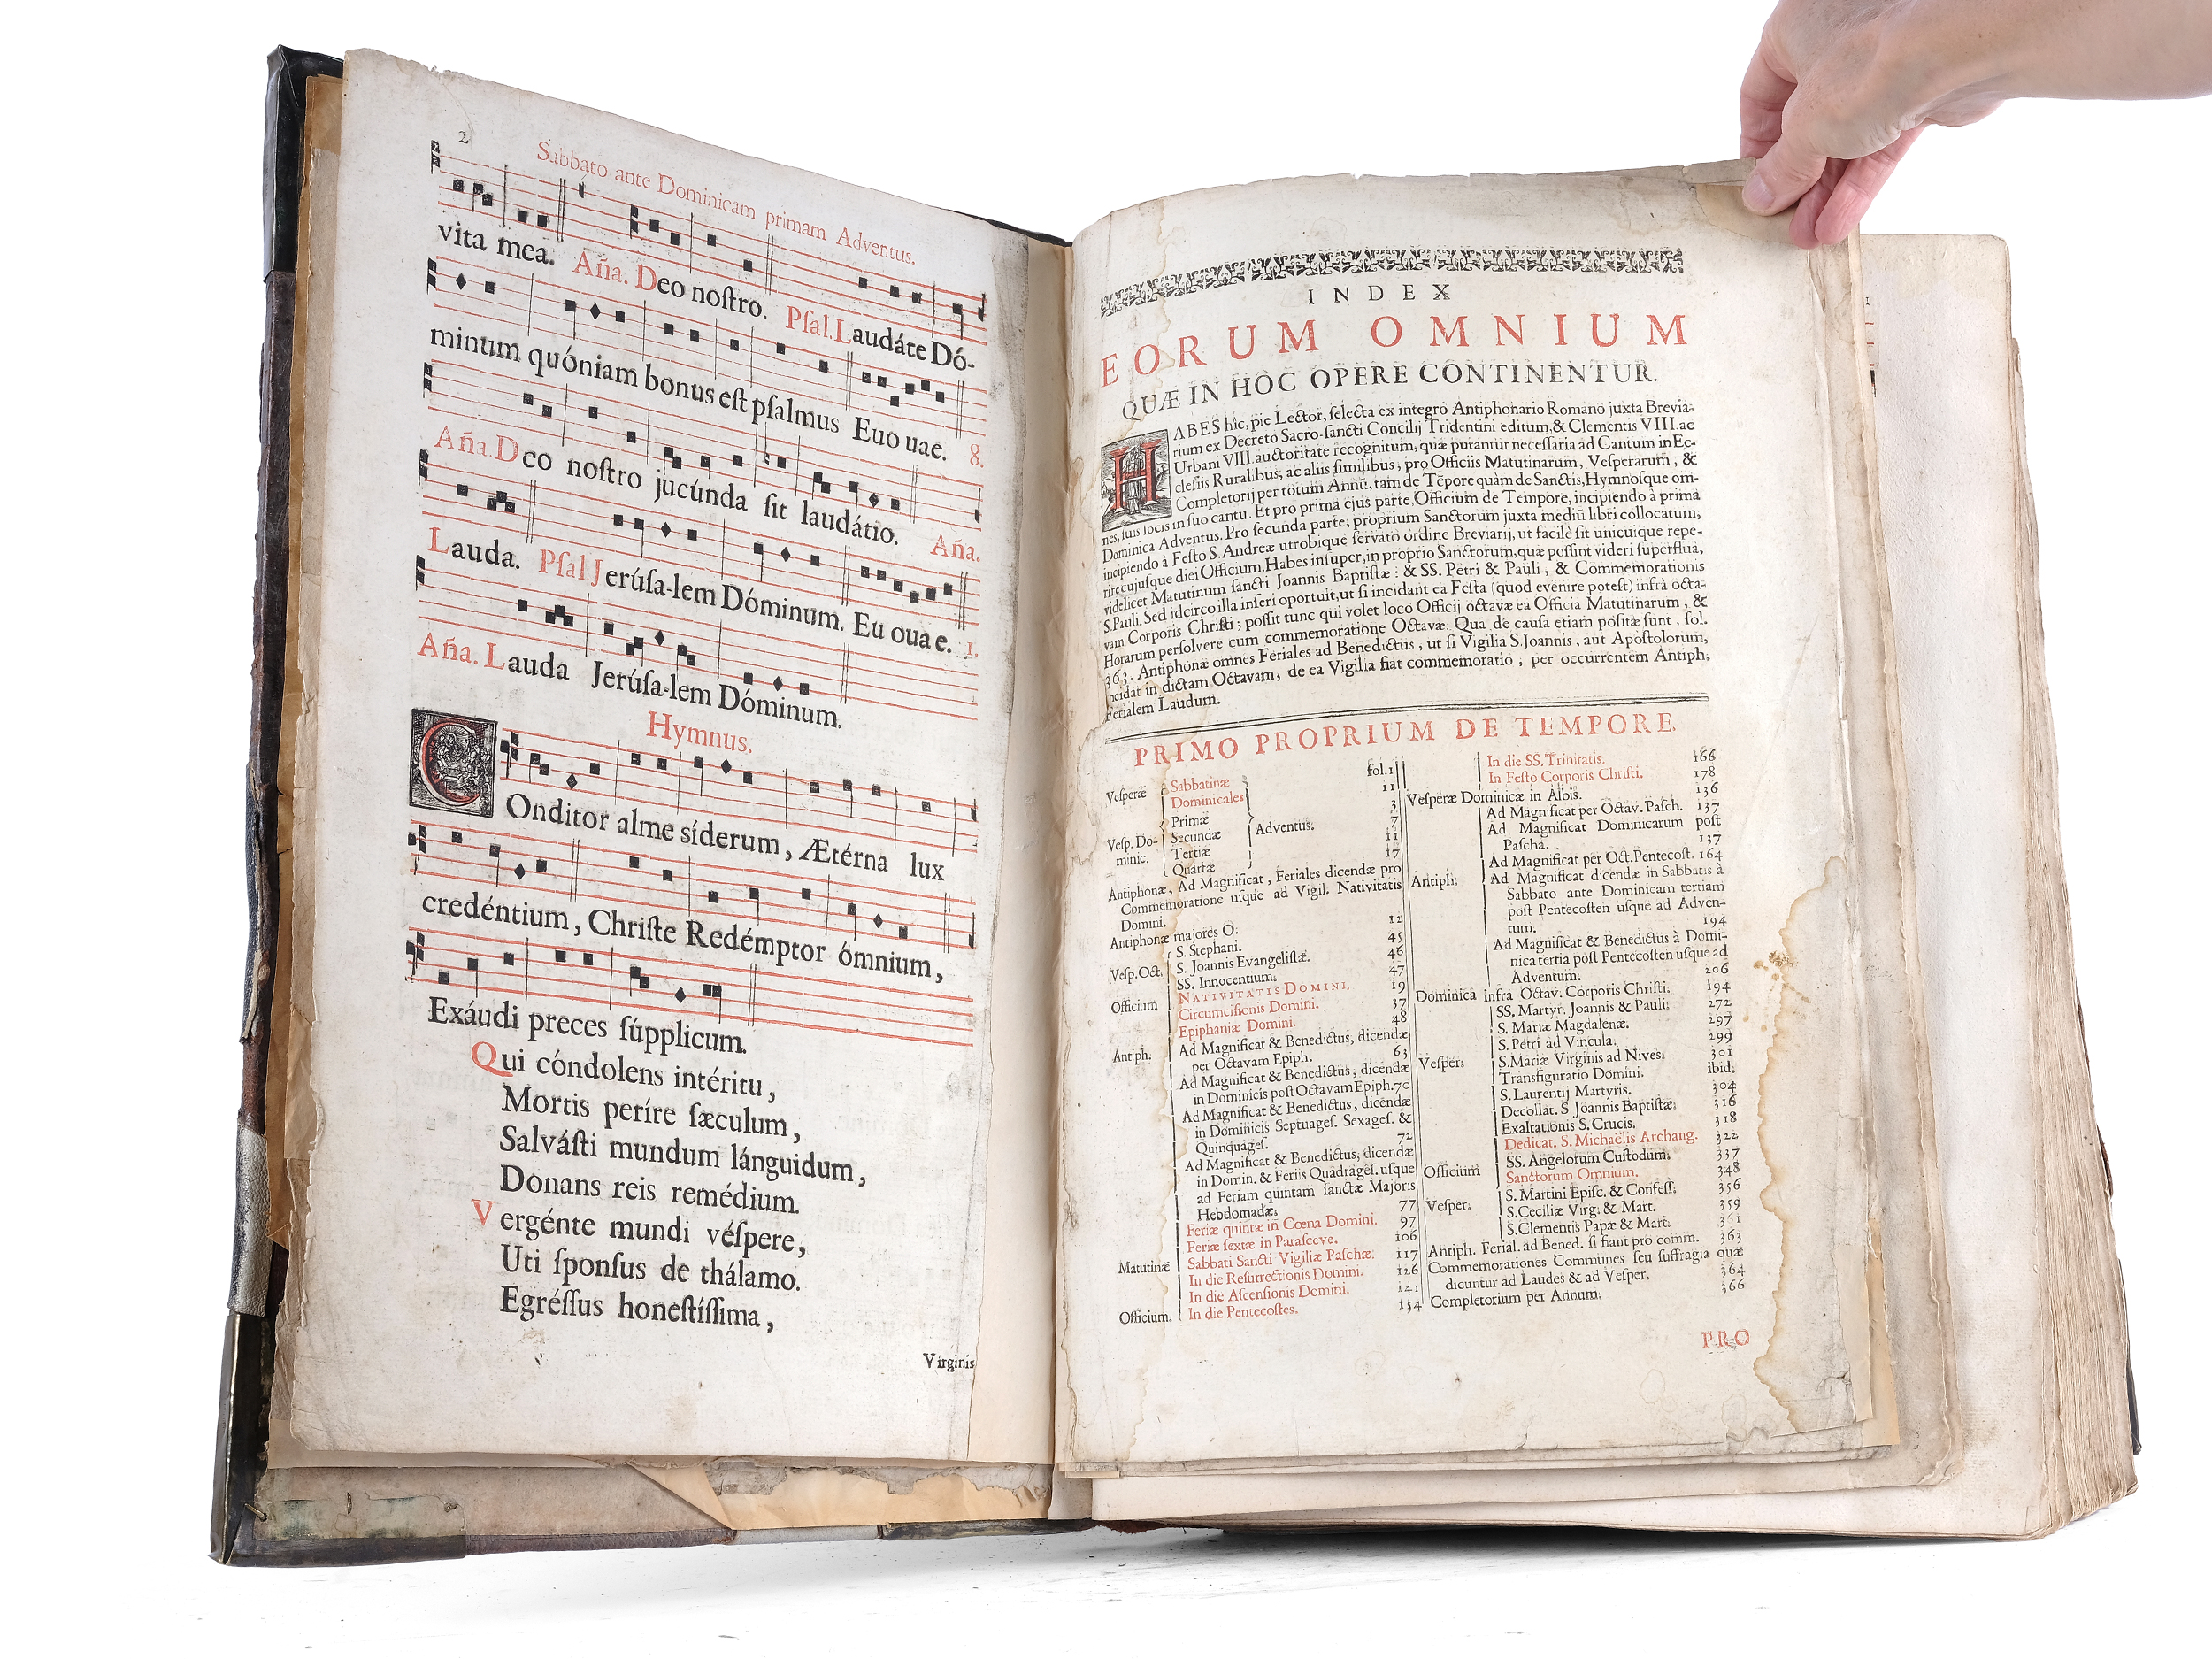 2
Sabbato ante Dominicam primam Adventus.
vita mea. Aña. Deo noſtro. Pſal. Laudáte Dó-
minum quóniam bonus eſt pſalmus Euo uae. 8.
Aña. Deo noſtro jucúnda ſit laudátio. Aña.
Lauda. Pſal. Jerúſa-lem Dóminum. Eu oua e. 1.
Aña. Lauda Jerúſa-lem Dóminum.
Hymnus.
COnditor alme síderum, Ætérna lux
credéntium, Chriſte Redémptor ómnium,
Exáudi preces ſúpplicum.
Qui cóndolens intéritu,
Mortis períre ſæculum,
Salváſti mundum lánguidum,
Donans reis remédium.
Vergénte mundi véſpere,
Uti ſponſus de thálamo.
Egréſſus honeſtíſſima,
Virginis
INDEX
EORUM OMNIUM
QUÆ IN HOC OPERE CONTINENTUR.
HABES hîc, pie Lector, ſelecta ex integro Antiphonario Romano juxta Brevia-
rium ex Decreto Sacro-ſancti Concilij Tridentini editum, & Clementis VIII. ac
Urbani VIII. auctoritate recognitum, quæ putantur neceſſaria ad Cantum in Ec-
cleſiis Ruralibus, ac aliis ſimilibus, pro Officiis Matutinarum, Veſperarum, &
Completorij per totum Annũ, tam de Tẽpore quàm de Sanctis, Hymnoſque om-
nes, ſuis locis in ſuo cantu. Et pro prima ejus parte, Officium de Tempore, incipiendo à prima
Dominica Adventus. Pro ſecunda parte; proprium Sanctorum juxta mediũ libri collocatum;
incipiendo à Feſto S. Andreæ utrobique ſervato ordine Breviarij, ut facilè ſit unicuique repe-
rire cujuſque diei Officium. Habes inſuper, in proprio Sanctorum, quæ poſſint videri ſuperflua,
videlicet Matutinum ſancti Joannis Baptiſtæ: & SS. Petri & Pauli, & Commemorationis
S. Pauli. Sed idcirco illa inſeri oportuit, ut ſi incidant ea Feſta (quod evenire poteſt) infrà octa-
vam Corporis Chriſti; poſſit tunc qui volet loco Officij octavæ ea Officia Matutinarum, &
Horarum perſolvere cum commemoratione Octavæ. Qua de cauſa etiam poſitæ ſunt, fol.
363. Antiphonæ omnes Feriales ad Benedictus, ut ſi Vigilia S. Joannis, aut Apoſtolorum,
incidat in dictam Octavam, de ea Vigilia fiat commemoratio; per occurrentem Antiph.
Ferialem Laudum.
PRIMO PROPRIUM DE TEMPORE.
fol. 1
Veſperæ Sabbatinæ
Dominicales 11
Veſp. Do-
minic.
Primæ 3
Secundæ 7
Adventus.
Tertiæ 11
Quartæ 17
Antiphonæ, Ad Magnificat, Feriales dicendæ pro
Commemoratione uſque ad Vigil. Nativitatis
Domini. 12
Antiphonæ majores O. 45
Veſp. Oct.
S. Stephani. 46
S. Joannis Evangeliſtæ. 47
SS. Innocentium. 19
Officium
NATIVITATIS DOMINI. 37
Circumciſionis Domini. 48
Epiphaniæ Domini.
Antiph.
Ad Magnificat & Benedictus, dicendæ
per Octavam Epiph. 63
Ad Magnificat & Benedictus, dicendæ
in Dominicis poſt Octavam Epiph. 70
Ad Magnificat & Benedictus, dicendæ
in Dominicis Septuageſ. Sexageſ. &
Quinquageſ. 72
Ad Magnificat & Benedictus, dicendæ
in Domin. & Feriis Quadrageſ. uſque
ad Feriam quintam ſanctæ Majoris
Hebdomadæ. 77
Matutinæ
Feriæ quintæ in Cœna Domini. 97
Feriæ ſextæ in Paraſceve. 106
Sabbati Sancti Vigiliæ Paſchæ. 117
In die Reſurrectionis Domini. 126
In die Aſcenſionis Domini. 141
Officium. In die Pentecoſtes. 154
In die SS. Trinitatis. 166
In Feſto Corporis Chriſti. 178
Veſperæ Dominicæ in Albis. 136
Antiph.
Ad Magnificat per Octav. Paſch. 137
Ad Magnificat Dominicarum poſt
Paſcha. 137
Ad Magnificat per Oct. Pentecoſt. 164
Ad Magnificat dicendæ in Sabbatis à
Sabbato ante Dominicam tertiam
poſt Pentecoſten uſque ad Adven-
tum. 194
Ad Magnificat & Benedictus à Domi-
nica tertia poſt Pentecoſten uſque ad
Adventum. 206
Dominica infra Octav. Corporis Chriſti. 194
Veſper.
SS. Martyr. Joannis & Pauli. 272
S. Mariæ Magdalenæ. 297
S. Petri ad Vincula. 299
S. Mariæ Virginis ad Nives. 301
Transfiguratio Domini. ibid.
S. Laurentij Martyris. 304
Decollat. S Joannis Baptiſtæ. 316
Exaltationis S. Crucis. 318
Officium
Dedicat. S. Michaëlis Archang. 322
SS. Angelorum Cuſtodum. 337
Sanctorum Omnium. 348
Veſper.
S. Martini Epiſc. & Confeſſ. 356
S. Ceciliæ Virg. & Mart. 359
S. Clementis Papæ & Mart. 361
Antiph. Ferial. ad Bened. ſi fiant pro comm. 363
Commemorationes Communes ſeu ſuffragia quæ
dicuntur ad Laudes & ad Veſper. 364
Completorium per Annum. 366
PRO